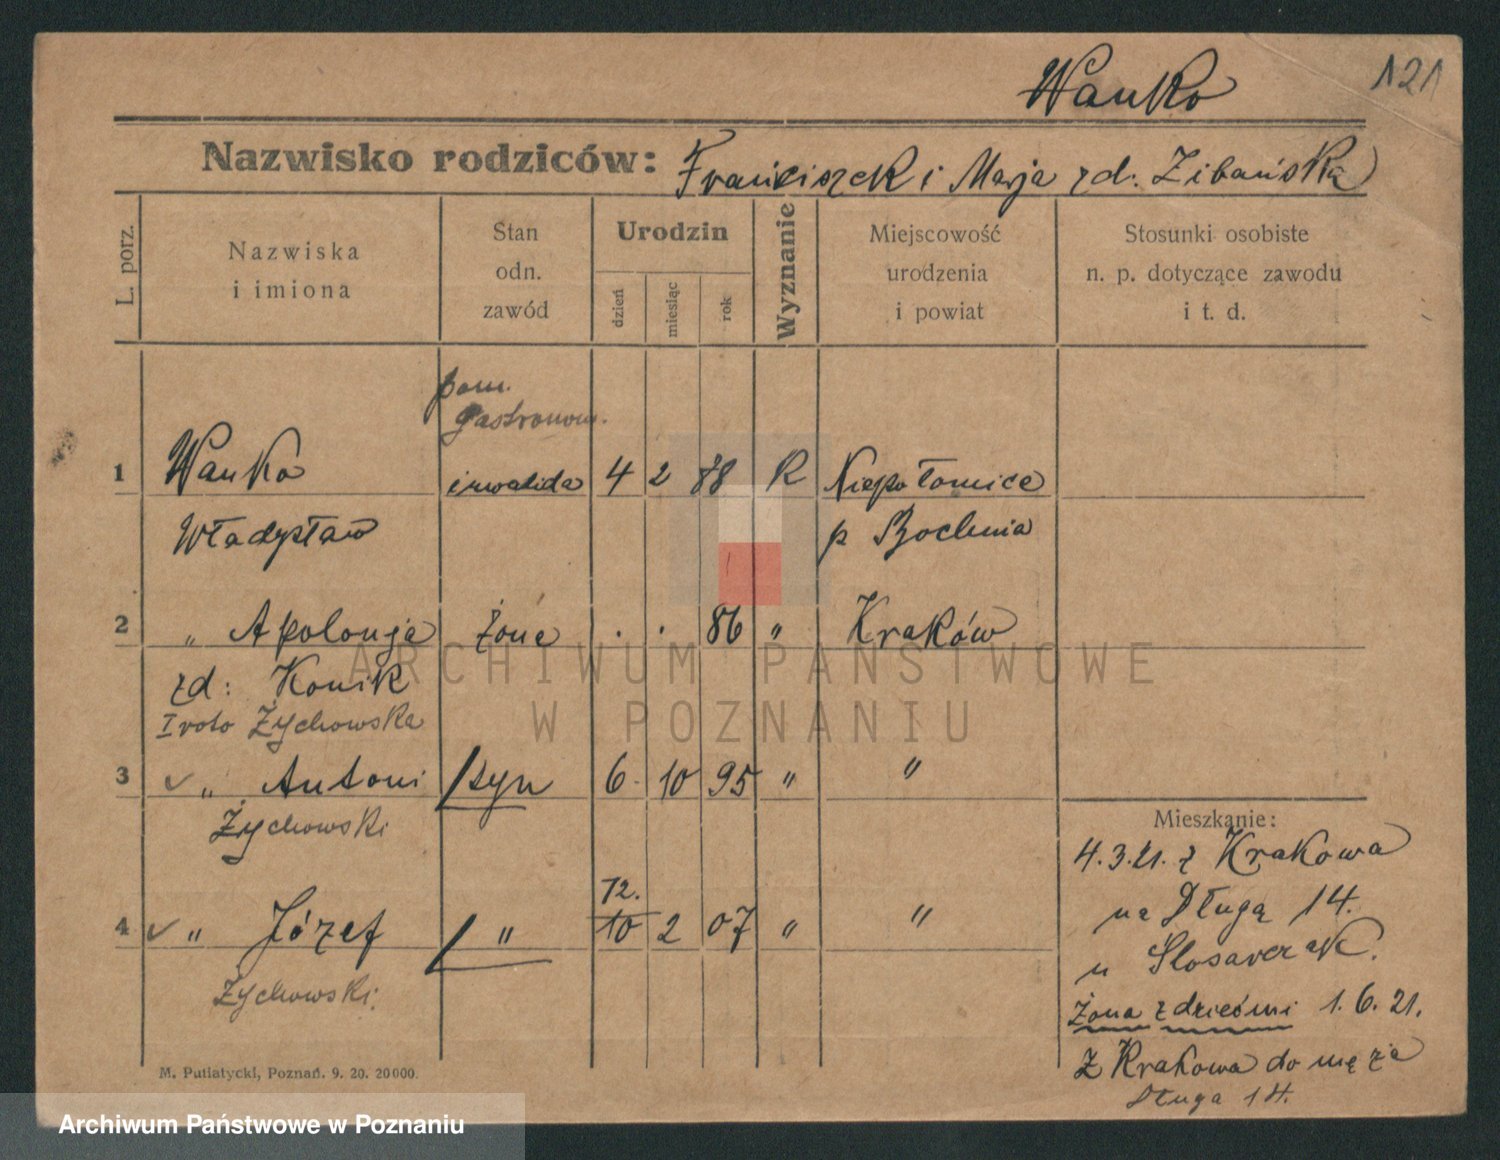 Wanko 121
Nazwisko rodziców: Franciszek i Marja zd. Zibańska
L. porz.
Nazwiska
i imiona
Stan
odn.
zawód
Urodzin
dzień
miesiąc
rok
Wyznanie
Miejscowość
urodzenia
i powiat
Stosunki osobiste
n. p. dotyczące zawodu
i t. d.
pom.
gastronom.
1 Wanko inwalida 4 2 88 R Niepołomice
Władysław p Bochnia
2 " Apolonja żona . . 86 " Kraków
zd: Konik
I voto Żychowska
3 " Antoni syn 6 10 95 " "
Żychowski
12.
4 " Józef " 10 2 07 " "
Żychowski
Mieszkanie:
4.3.21. z Krakowa
na Długą 14.
u Slosarczak.
Żona z dziećmi 1.6.21.
z Krakowa do męża
Długa 14.
M. Putiatycki, Poznań. 9. 20. 20000.
ARCHIWUM PAŃSTWOWE
W POZNANIU
Archiwum Państwowe w Poznaniu